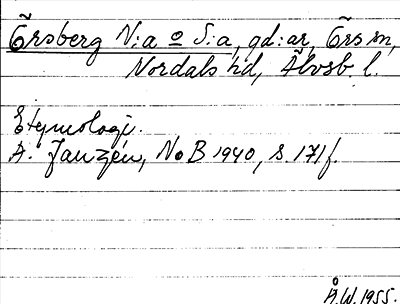 Örsberg N:a o S:a, gd:ar, Örs sn,
Nordals hd, Älvsb l.
Etymologi.
A. Janzén, NoB 1940, s. 171 f.
Å.W. 1955.